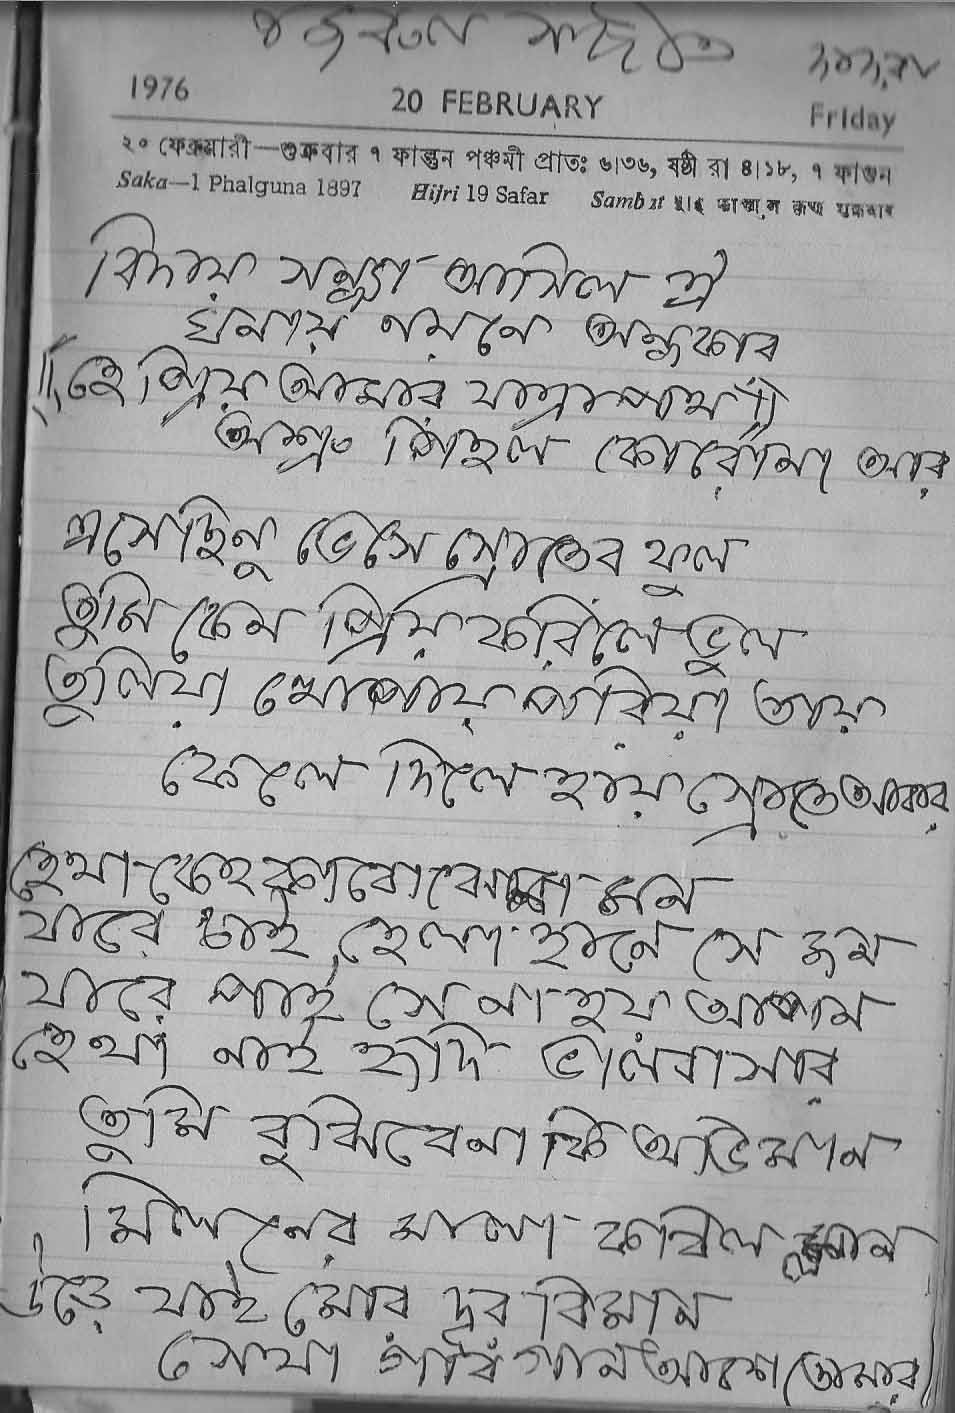 নজরুল গীতি
1976 20 FEBRUARY Friday
২০ ফেব্রুয়ারী—শুক্রবার ৭ ফাল্গুন পঞ্চমী প্রাতঃ ৬।৩৬, ষষ্ঠী রা ৪।১৮, ৭ ফাগুন
Saka—1 Phalguna 1897 Hijri 19 Safar Sambat
বিদায় সন্ধ্যা আসিল ঐ
ঘনায় নয়নে অন্ধকার
হে প্রিয় আমার যাত্রাপথ
অশ্রু পিছল কোরোনা আর
এসেছিনু ভেসে স্রোতের ফুল
তুমি কেন প্রিয় করিলে ভুল
তুলিয়া খোপায় পরিয়া তায়
ফেলে দিলে হায় স্রোতে আবার
হেথা কেহ কারো বোঝেনা মন
যারে চাই হেলা হানে সে জন
যারে পাই সে না হয় আপন
হেথা নাই হৃদি ভালবাসার
তুমি বুঝিবেনা কি অভিমান
মিলনের মালা করিল ম্লান
উড়ে যাই মোর দূর বিমান
সেথা গাব গান আশে তোমার